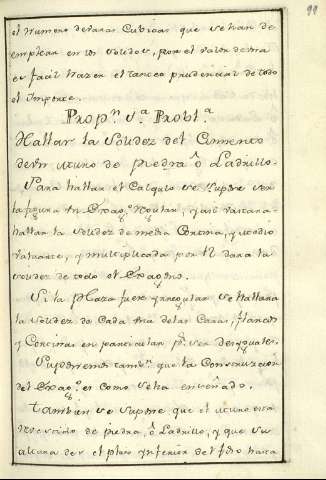 99
el numero de varas Cubicas que se han de
emplear en los solidos, por el valor de una
es facil hazer el tanteo prudencial de todo
el Importe.
Propn. 5a. Probla.
Hallar la Solidez del Cimiento
de un de Piedra ô Ladrillo.
Para hallar el Calculo se supone ser
la figura un Exago. Regular, y asi bastara
hallar la solidez de media Cortina, y medio
Valuarte, y multiplicada por 12 dara la
solidez de todo el Exagono.
Si la Plaza fuere yrregular se hallara
la solidez de Cada una de las Caras, flancos
y Cortinas en particular pr. ser desyguales.
Suponemos tambn. que la Construccion
del Exago. es como se ha enseñado.
Tambien se supone que el esta
revestido de piedra, ô Ladrillo, y que su
altura des el plan ynferior del foso hasta